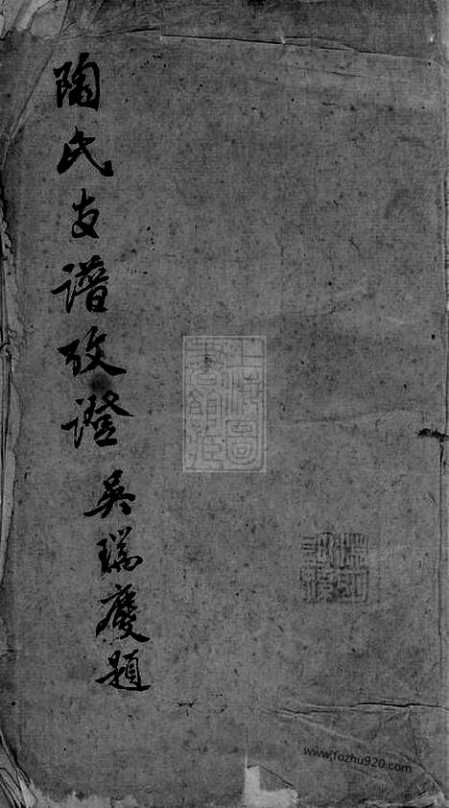 陶氏支譜攷證
吳瑞慶題
www.fozhu920.com